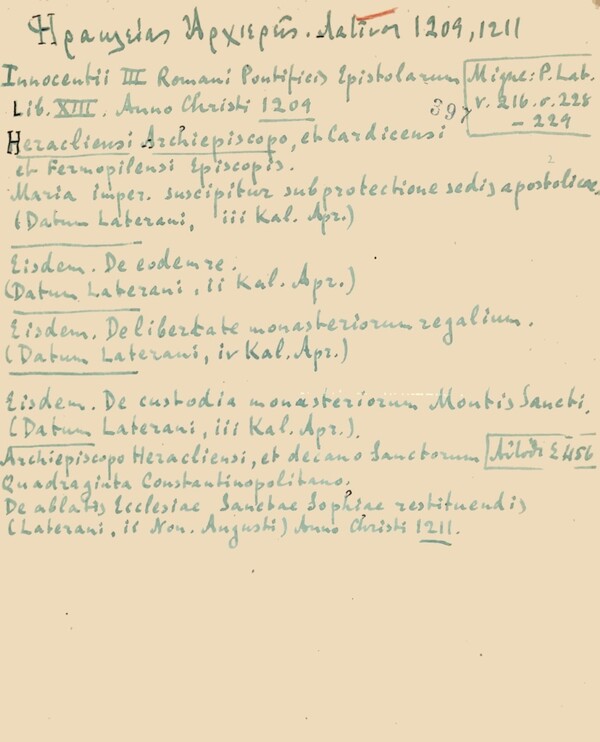 Ἡρακλείας Ἀρχιερεῖς. Λατῖνοι 1209, 1211
Innocentii III Romani Pontificis Epistolarum
Migne: P. Lat.
v. 216. σ. 228
– 229
Lib. XIII. Anno Christi 1209
397
Heracliensi Archiepiscopo, et Cardicensi
et Fermopilensi Episcopis.
Maria imper. suscipitur sub protectione sedis apostolicae,
(Datum Laterani, iii Kal. Apr.)
Eisdem. De eodem re.
(Datum Laterani, ii Kal. Apr.)
Eisdem. De libertate monasteriorum regalium.
(Datum Laterani, iv Kal. Apr.)
Eisdem. De custodia monasteriorum Montis Sancti.
(Datum Laterani, iii Kal. Apr.).
Archiepiscopo Heracliensi, et decano Sanctorum
Αὐτόθι Σ 456
Quadraginta Constantinopolitano.
De ablatis Ecclesiae Sanctae Sophiae restituendis
(Laterani, ii Non. Augusti) Anno Christi 1211.